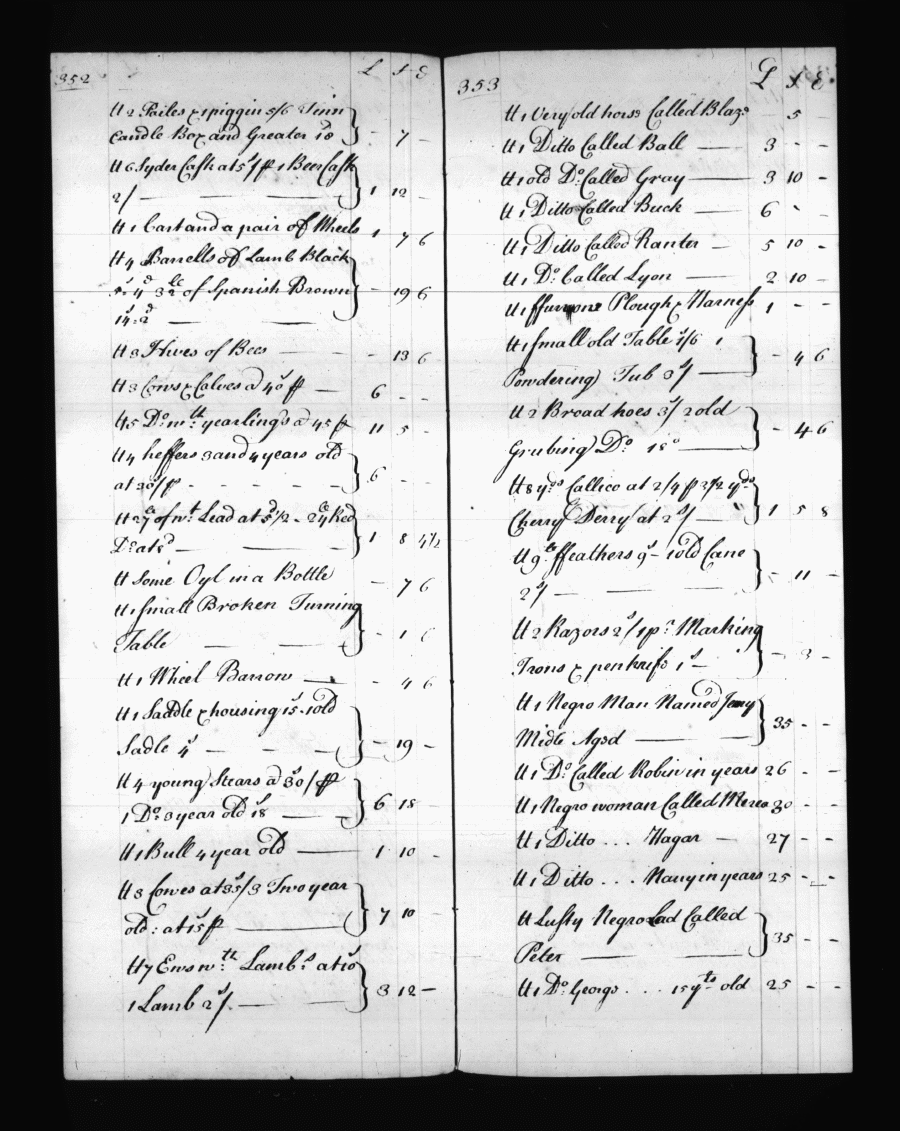 352
£ s d
It 2 Pailes & 1 piggin 5/6 Tinn
Candle Box and Greater 18d - 7 -
It 6 Syder Cask at 5s/ p 1 Beer Cask
2/ 1 12 -
It 1 Cart and a pair of Wheels 1 7 6
It 4 Barrells of Lamb Black
5s 4d 32lb of Spanish Brown - 19 6
14s=2d
It 3 Hives of Bees - 13 6
It 3 Cows & Calves @ 40s p 6 - -
It 5 Do wth yearlings @ 45 p 11 5 -
It 4 heffers 3 and 4 years old
at 30s/ p 6 - -
It of wt Lead at Red
Do at 8d 1 8 4 1/2
It Some Oyl in a Bottle - 7 6
It 1 Small Broken Turning
Table - 1 6
It 1 Wheel Barrow - 4 6
It 1 Saddle & housing 15s 1 old
Sadle 4s - 19 -
It 4 young Stears @ 30s/ p
1 Do 3 year old 18s 6 18 -
It 1 Bull 4 year old 1 10 -
It 3 Cowes at 35/ 3 Two year
old: at 15s p 7 10 -
It 7 Ews wth Lambs at 10s
1 Lamb 2s/ 3 12 -
353
£ s d
It 1 Very old horse Called Blaze - 5 -
It 1 Ditto Called Ball 3 - -
It 1 old Do Called Gray 3 10 -
It 1 Ditto Called Buck 6 - -
It 1 Ditto Called Ranter 5 10 -
It 1 Do Called Lyon 2 10 -
It 1 Plough & Harness 1 - -
It 1 Small old Table 1s/6 1
Powdering Tub 3s/ - 4 6
It 2 Broad hoes 3s/ 2 old
Grubing Do 18d - 4 6
It 8 yds Callico at 2/4 p 3 1/2 yds
Cherry Derry at 2s/ 1 5 8
It 9lb ffeathers 9s - 1 old Cane
2s/ - 11 -
It 2 Razors 2s/ 1 pr Marking
Irons & penknife 1s - 3 -
It 1 Negro Man Named Jemy
Midle Aged 35 - -
It 1 Do Called Robin in years 26 - -
It 1 Negro woman Called Merea 30 - -
It 1 Ditto ... Hagar 27 - -
It 1 Ditto ... Nany in years 25 - -
It Lusty Negro Lad Called
Peter 35 - -
It 1 Do George ... 15 yrs old 25 - -